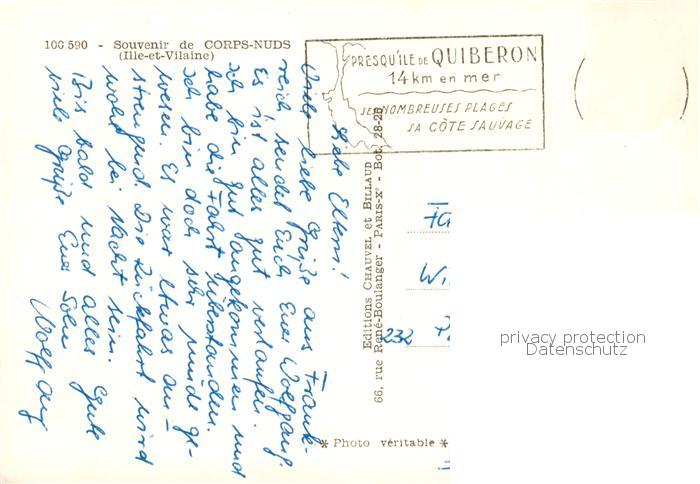 106 590 - Souvenir de CORPS-NUDS
(Ille-et-Vilaine)
PRESQU'ILE DE QUIBERON
14 km en mer
SES NOMBREUSES PLAGES
SA CÔTE SAUVAGE
Liebe Eltern!
Viele liebe Grüße aus Frank-
reich sendet Euch Euer Wolfgang.
Es ist alles gut verlaufen.
Ich bin gut angekommen und
habe die Fahrt überstanden.
Ich bin doch sehr müde ge-
wesen. Es war etwas an-
strengend. Die Rückfahrt wird
wohl bei Nacht sein.
Bis bald und alles Gute
viele Grüße Euer Sohn
Wolfgang
Editions CHAUVEL et BILLAUD
66, rue René-Boulanger - PARIS-Xe - Bot. 28-28
Wi
232
* Photo véritable *
privacy protection
Datenschutz